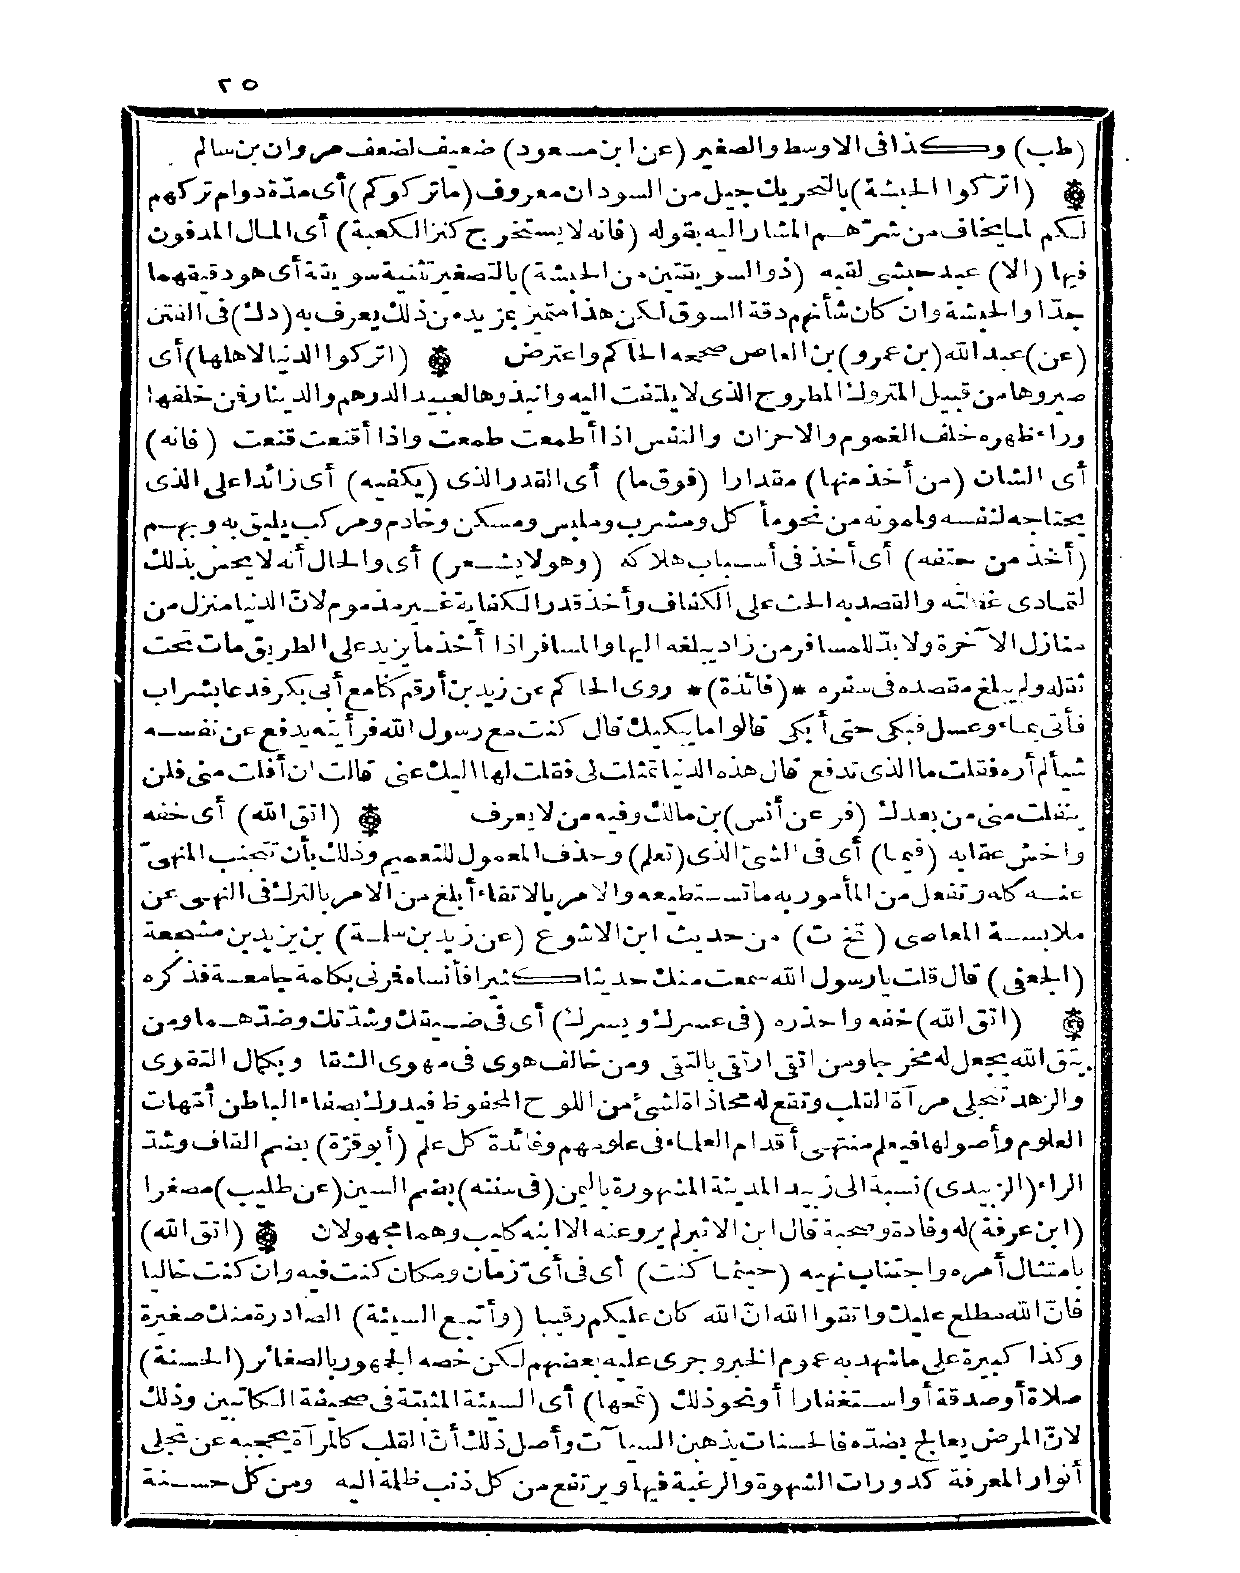 ٢٥
(طب) وكذا فى الاوسط والصغير (عن ابن مسعود) ضعيف لضعف مروان بن سالم
(اتركوا الحبشة) بالتحريك جيل من السودان معروف (ماتركوكم) أى مدّة دوام تركهم
لكم لما يخاف من شرّهم المشار اليه بقوله (فانه لا يستخرج كنز الكعبة) أى المال المدفون
فيها (الا) عبد حبشى لقبه (ذو السويقتين من الحبشة) بالتصغير تثنية سويقة أى هو دقيقهما
جدّا والحبشة وان كان شأنهم دقة السوق لكن هذا متميز بمزيد من ذلك يعرف به (دك) فى الفتن
(عن) عبد الله (بن عمرو) بن العاص صححه الحاكم واعترض (اتركوا الدنيا لاهلها) أى
صيروها من قبيل المتروك المطروح الذى لا يلتفت اليه وانبذوها لعبيد الدرهم والدينار فن خلفها
وراء ظهره خلف الغموم والاحزان والنفس اذا أطمعت طمعت واذا أقنعت قنعت (فانه)
أى الشان (من أخذ منها) مقدارا (فوق ما) أى القدر الذى (يكفيه) أى زائدا على الذى
يحتاجه لنفسه ولمونه من نحو مأكل ومشرب وملبس ومسكن وخادم ومركب يليق به وبهم
(أخذ من حتفه) أى أخذ فى أسباب هلاكه (وهو لا يشعر) أى والحال أنه لا يحس بذلك
لتمادى غفلته والقصد به الحث على الكفاف وأخذ قدر الكفاية غير مذموم لانّ الدنيا منزل من
منازل الآخرة ولا بدّ للمسافر من زاد يبلغه اليها والمسافر اذا أخذ ما يزيد على الطريق مات تحت
ثقله ولم يبلغ مقصده فى سفره * (فائدة) * روى الحاكم عن زيد بن أرقم كنا مع أبى بكر فدعا بشراب
فأتى بماء وعسل فبكى حتى أبكى قالوا ما يبكيك قال كنت مع رسول الله فرأيته يدفع عن نفسه
شيأ لم أره فقلت ما الذى تدفع قال هذه الدنيا تمثلت لى فقلت لها اليك عنى قالت ان أفلت منى فلن
ينفلت منى من بعدك (فر عن أنس) بن مالك وفيه من لا يعرف (اتق الله) أى خفه
واخش عقابه (فيما) أى فى الشئ الذى (تعلم) وحذف المعمول للتعميم وذلك بأن تجتنب المنهىّ
عنه كله وتفعل من المأمور به ما تستطيعه والامر بالاتقاء أبلغ من الامر بالترك فى النهى عن
ملابسة المعاصى (تخ ت) من حديث ابن الاشوع (عن زيد بن سلمة) بن يزيد بن مشجعة
(الجعفى) قال قلت يا رسول الله سمعت منك حديثا كثيرا فأنساه فمرنى بكلمة جامعة فذكره
(اتق الله) خفه واحذره (فى عسرك ويسرك) أى فى ضيقك وشدّتك وضدّهما ومن
يتق الله يجعل له مخرجا ومن اتقى ارتقى بالتقى ومن خالف هوى فى مهوى الشقا وبكمال التقوى
والزهد تنجلى مرآة القلب وتقع له محاذاة لشئ من اللوح المحفوظ فيدرك بصفاء الباطن أمّهات
العلوم وأصولها فيعلم منتهى أقدام العلماء فى علومهم وفائدة كل علم (أبو قرّة) بضم القاف وشدّ
الراء (الزبيدى) نسبة الى زبيد المدينة المشهورة باليمن (فى سننه) بضم السين (عن طليب) مصغرا
(ابن عرفة) له وفادة وصحبة قال ابن الاثير لم يرو عنه الا ابنه كليب وهما مجهولان (اتق الله)
بامتثال أمره واجتناب نهيه (حيثما كنت) أى فى أىّ زمان ومكان كنت فيه وان كنت خاليا
فانّ الله مطلع عليك واتقوا الله انّ الله كان عليكم رقيبا (وأتبع السيئة) الصادرة منك صغيرة
وكذا كبيرة على ما شهد به عموم الخبر وجرى عليه بعضهم لكن خصه الجمهور بالصغائر (الحسنة)
صلاة أو صدقة أو استغفارا أو نحو ذلك (تمحها) أى السيئة المثبتة فى صحيفة الكاتبين وذلك
لانّ المرض يعالج بضدّه فالحسنات يذهبن السيآت وأصل ذلك أنّ القلب كالمرآة يحجبه عن تجلى
أنوار المعرفة كدورات الشهوة والرغبة فيها ويرتفع من كل ذنب ظلمة اليه ومن كل حسنة